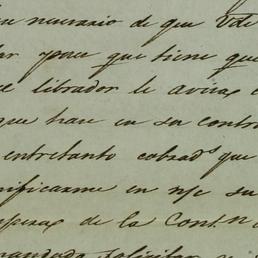 necesario de que
porque que tiene que
librador le avisa
que hace en su contra
entretanto cobrads que
nificarme en nje su
de la Contn
solicitar